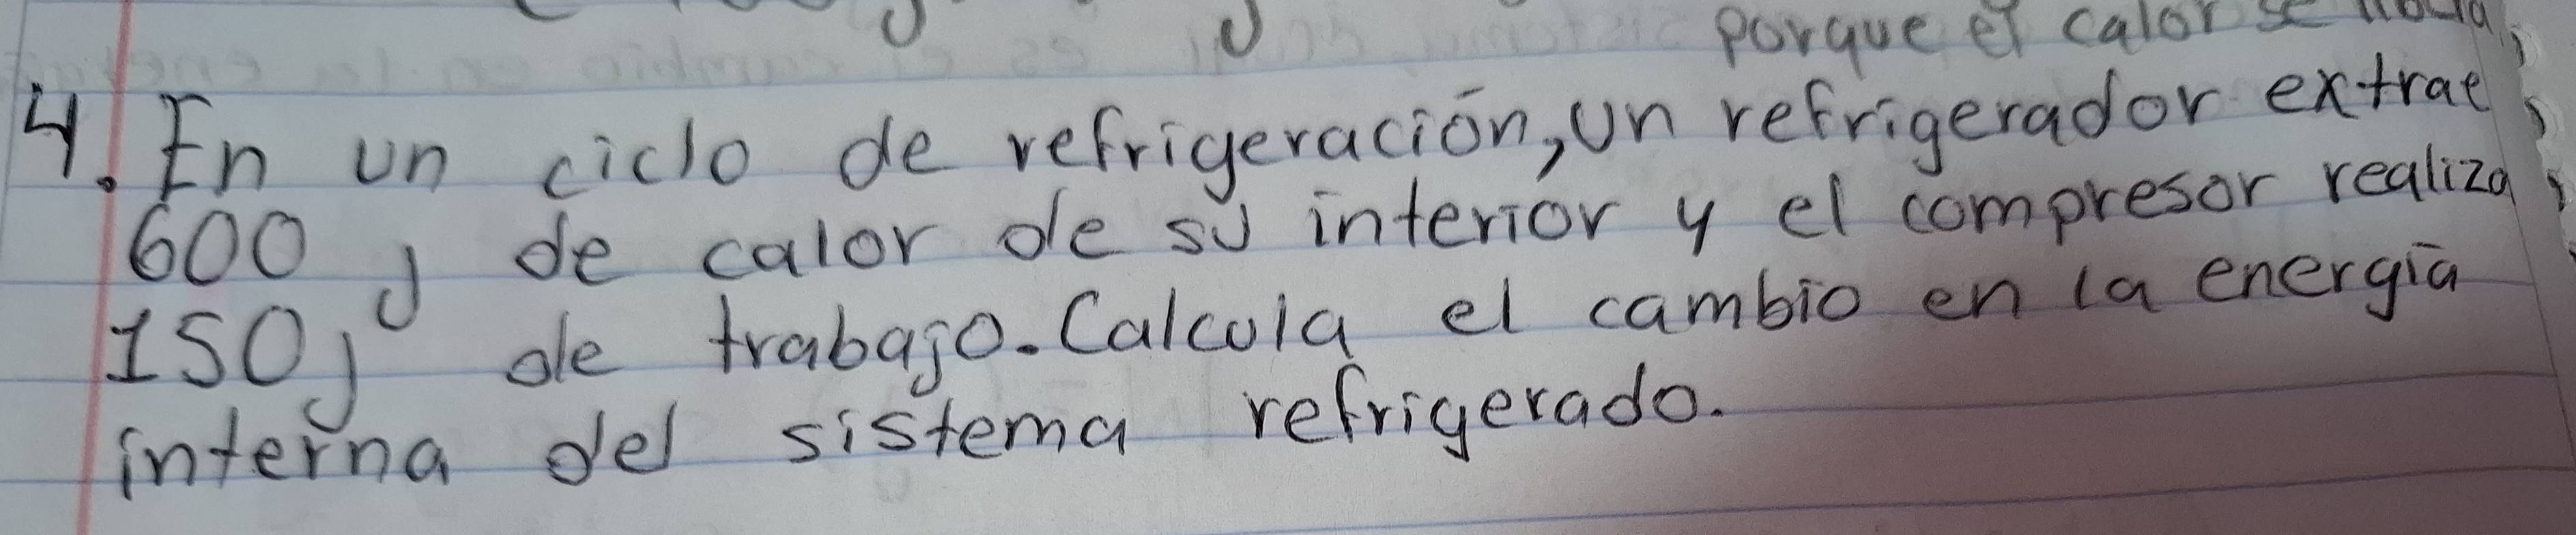 porque el calor se
4. En un ciclo de refrigeración, un refrigerador extrae
600 j de calor de su interior y el compresor realiza
150 j de trabajo. Calcula el cambio en la energía
interna del sistema refrigerado.